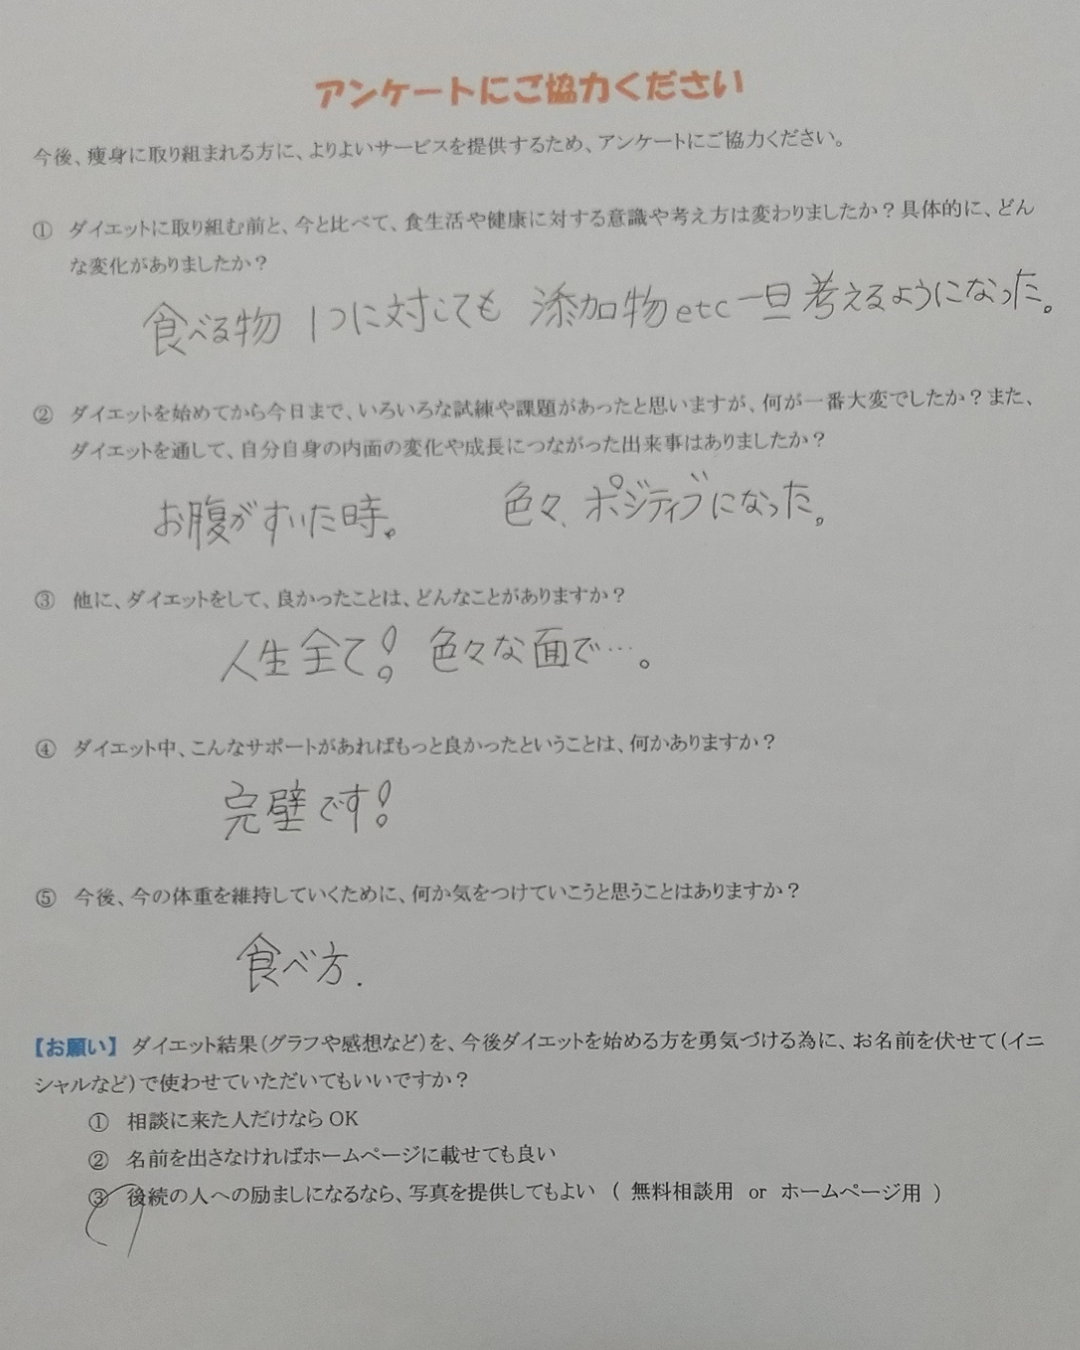 アンケートにご協力ください
今後、痩身に取り組まれる方に、よりよいサービスを提供するため、アンケートにご協力ください。
① ダイエットに取り組む前と、今と比べて、食生活や健康に対する意識や考え方は変わりましたか？具体的に、どん
な変化がありましたか？
食べる物 1つに対しても 添加物etc一旦考えるようになった。
② ダイエットを始めてから今日まで、いろいろな試練や課題があったと思いますが、何が一番大変でしたか？また、
ダイエットを通して、自分自身の内面の変化や成長につながった出来事はありましたか？
お腹がすいた時。 色々、ポジティブになった。
③ 他に、ダイエットをして、良かったことは、どんなことがありますか？
人生全て！ 色々な面で…。
④ ダイエット中、こんなサポートがあればもっと良かったということは、何かありますか？
完璧です！
⑤ 今後、今の体重を維持していくために、何か気をつけていこうと思うことはありますか？
食べ方.
【お願い】 ダイエット結果（グラフや感想など）を、今後ダイエットを始める方を勇気づける為に、お名前を伏せて（イニ
シャルなど）で使わせていただいてもいいですか？
① 相談に来た人だけなら OK
② 名前を出さなければホームページに載せても良い
③ 後続の人への励ましになるなら、写真を提供してもよい （ 無料相談用 or ホームページ用 ）